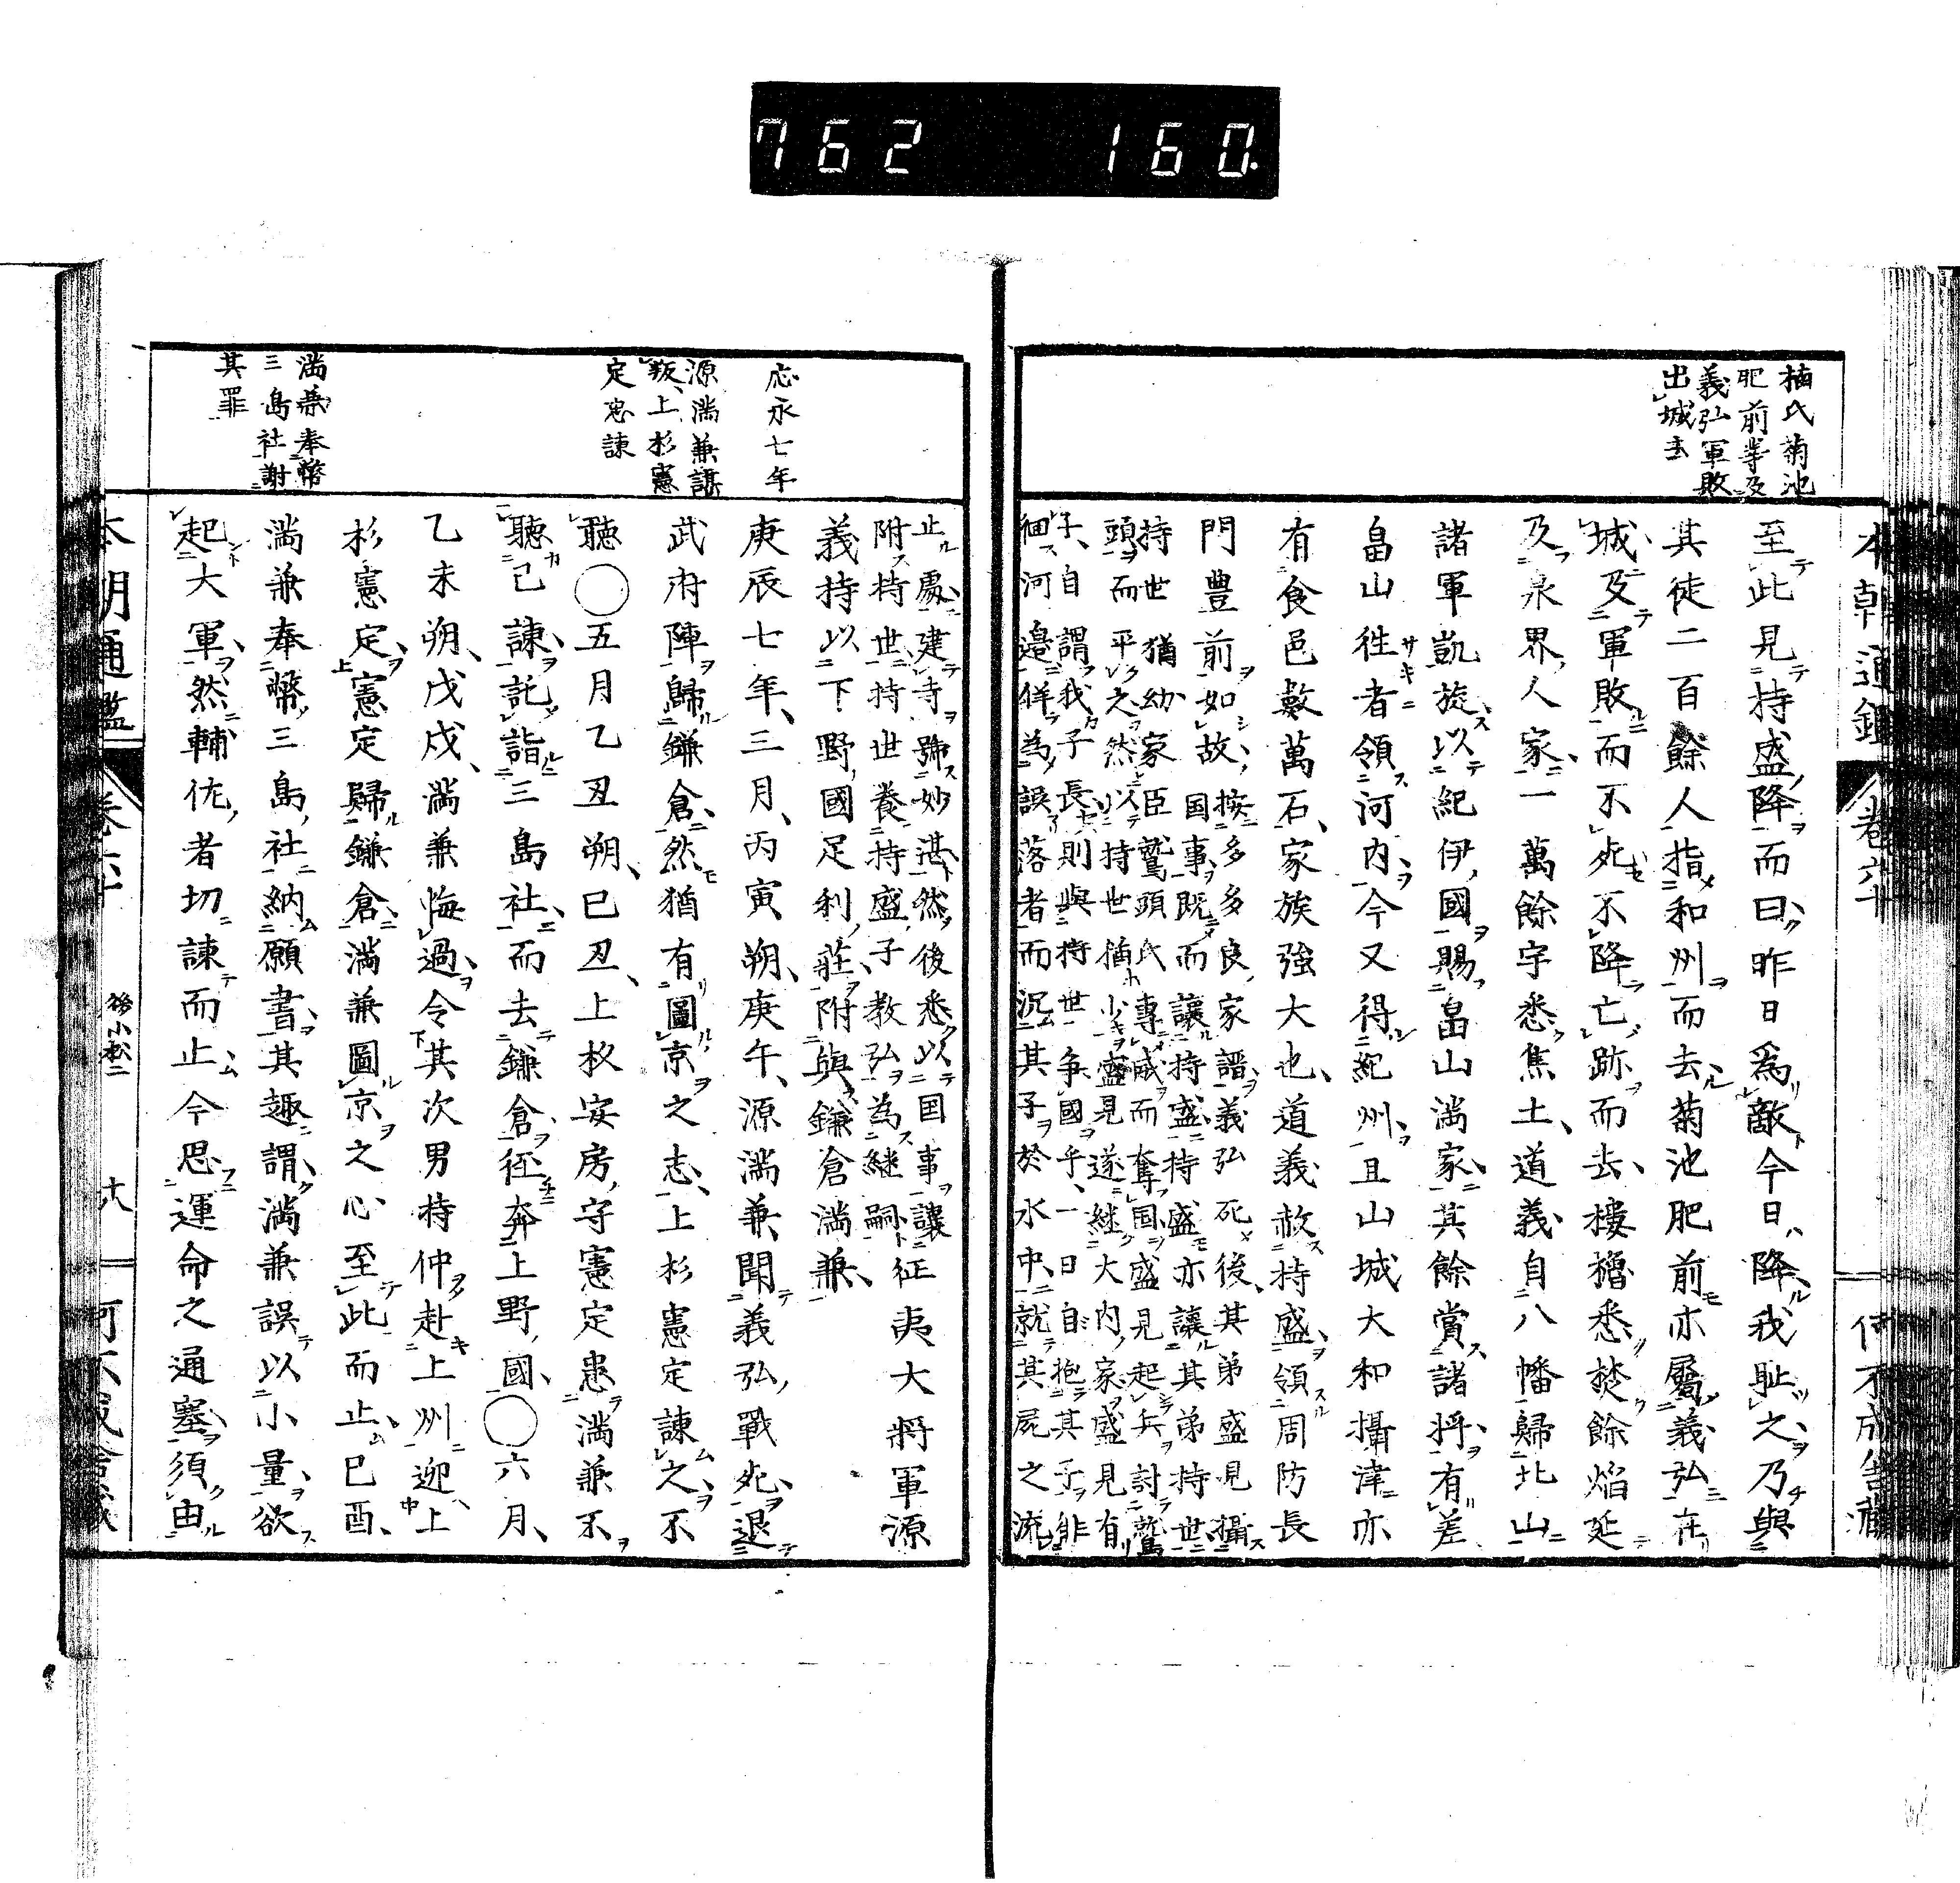 762 160
楠氏菊池
肥前等及
義弘軍敗
出城去
至此見持盛降而曰昨日爲敵今日降我耻之乃與
其徒二百餘人指和州而去菊池肥前亦屬義弘在
城及軍敗而不死不降亡跡而去樓櫓悉焚餘焰延
及泉界人家一萬餘宇悉焦土道義自八幡歸北山
諸軍凱旋以紀伊國賜畠山満家其餘賞諸将有差
畠山徃者領河内今又得紀州且山城大和攝津亦
有食邑數萬石家族強大也道義赦持盛領周防長
門豊前如故
按多多良家譜義弘死後其弟盛見攝
国事既而讓持盛持盛亦讓其弟持世
持世猶幼家臣鷲頭氏專威而奪国盛見起兵討鷲
頭而平之然以持世猶少盛見遂継大内家盛見有
子自謂我子長則與持世争國乎一日自抱其子非
徊河邉佯為誤落者而沉其子於水中就其屍之流
止處建寺號妙湛然後悉以国事讓
附持世持世養持盛子教弘為継嗣
征夷大将軍源
義持以下野國足利莊附與鎌倉満兼
庚辰七年三月丙寅朔庚午源満兼聞義弘戰死退
武府陣歸鎌倉然猶有圖京之志上杉憲定諫之不
聽○五月乙丑朔己丑上杦安房守憲定患満兼不
聽己諫託詣三島社而去鎌倉径奔上野國○六月
乙未朔戊戌満兼悔過令其次男持仲赴上州迎上
杉憲定憲定歸鎌倉満兼圖京之心至此而止己酉
満兼奉幣三島社納願書其趣謂満兼誤以小量欲
起大軍然輔佐者切諫而止今思運命之通塞須由
應永七年
源満兼謀
叛上杉憲
定忠諫
満兼奉幣
三島社謝
其罪
本朝通鑑 卷六十
後小松二
十八